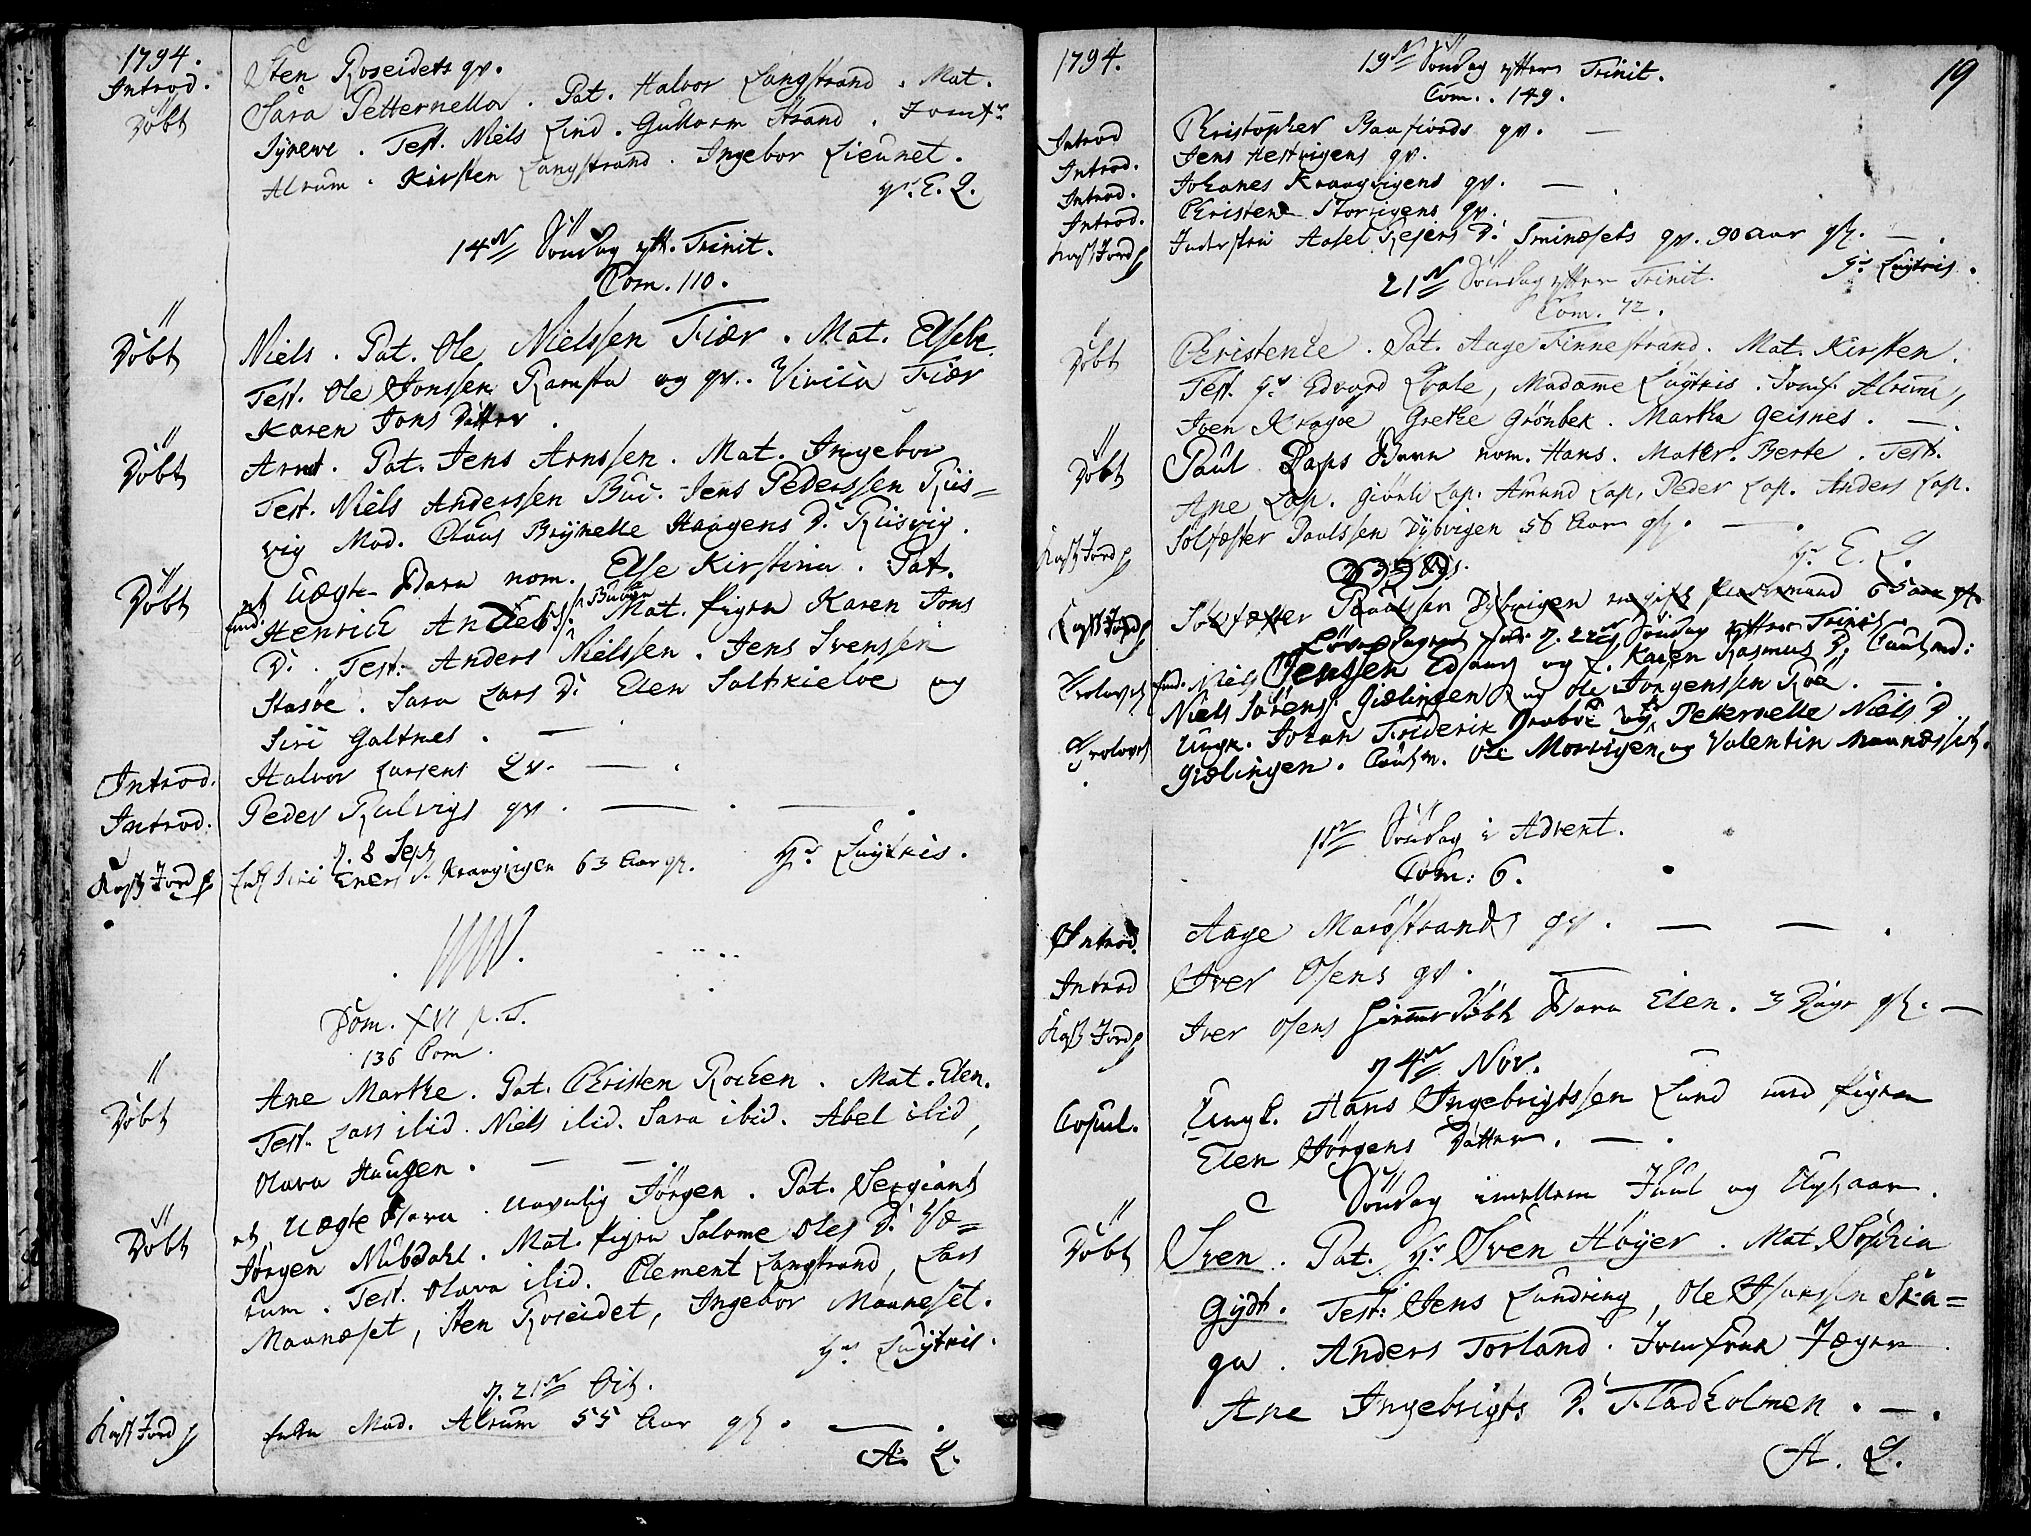 1794.
Introd. Sten Roseidets qv.
Döbt Sara Petternella. Pat. Halvor Langstrand. Mat.
Synewe. Test. Niels Lind. Guttorm Strand. Jomfr
Alrum. Kirsten Langstrand. Ingebor Lieunet.
Hr. E. L.
14 Söndag ytt. Trinit.
Com. 110.
Döbt Niels. Pat. Ole Nielssen Fiær. Mat. Elsebe.
Test. Ole Jonssen Ramsta og qv. Vivica Fiær
Karen Jons Dötter.
Döbt Arnt. Pat. Jens Arnssen. Mat. Ingebor
Test. Niels Anderssen Buc. Jens Pederssen Riis=
vig Mad. Claus Brynelle Haagens D. Riisvig.
Döbt et Uægte Barn nom. Else Kirstina. Pat.
Henrich Mat. Pigen Karen Jons
D. Test: Anders Nielssen. Jens Svenssen
Stasöe. Sara Lars D. Elen Saltkielve og
Siri Galtnes. —
Introd. Halvor Larsens Qv. — .
Introd: Peder Rulvigs qv. — . — .
d. 8 Sept
Kast Jord p Siri Eners D. Kraagvigen 63 Aar gl. Hr Luytkis.
Dom. XVI p. T.
136 Com.
Döbt Ane Marthe. Pat. Christen Rochen. Mat. Elen.
Test. Lars ibid. Niels ibid. Sara ibid. Abel ibid,
Olava Haugen. — —
Döbt et Uægte Barn navnlig Jörgen. Pat. Sergiant
Jörgen Nubdahl. Mat. Pigen Salome Oles D. Væ=
rum. Test. Olava ibid. Clement Langstrand, Lars
Maanæset, Sten Roseidet, Ingebor Maaneset.
Hr Luytkis.
d. 21 Oct.
Kast Jord p Mad. Alrum 55 Aar gl. — .
A. L.
1794. 19
19 Söndag ytter Trinit.
Com. 149.
Introd Christopher Baafiords qv. —
Introd. Jens Hestvigens qv.
Introd. Johanes Kraagvigens qv. — .
Introd. Christen Storvigens qv.
Kast Jord p Aasel D. Sminæsets qv. 90 Aar gl. — .
Hr Luytkis.
21 Söndag ytter Trinit.
Com. 72.
Döbt Christence. Pat. Aage Finnestrand. Mat. Kirsten.
Test. Hr Edvard Qvale, Madame Luytkis. Jomf. Alrum,
Iven Kragöe Grethe Grönbek. Martha Geisnes. — .
Döbt Paul Laps Barn nom. Hans. Mater. Berte. Test.
Ane Lap. Lap. Amund Lap, Peder Lap. Anders Lap.
Kast Jord p Sölfæster Paulssen Dybvigen 56 Aar gl. — .
Hr E. L.
Kast Jord p Sölfæster Paulssen Dybvigen
Söndag ytter Trinit.
Trolovet Niels Jenssen Edvaag og P. Karen Rasmus D. Cautned:
Niels Sörens. Giælingen og Ole Jörgenssen Roe. — .
Trolovet Ungk. Johan Friderik og Petternelle Niels D
Giælingen. Cautn. Ole Morvigen og Valentin Maanæsset.
1ste Söndag i Advent.
Com: 6.
Introd. Aage Maröstrands qv. — — .
Introd Iver Osens qv. —
Kast Jord p Iver Osens Hiemmedöbt Barn Elen. 3 Dage gl. —
d 4 Nov.
Copul. Ungk. Hans Ingebrigtssen Lund med Pigen
Elen Jörgens Dötter. — .
Söndag imellem Juul og Nytaar.
Döbt Sven. Pat. Hr Sven Höyer. Mat. Sophia
Gydt. Test: Jens Lundring, Ole Ska=
ga. Anders Torland. Jomfrue Jæger
Ane Ingebrigts D. Fladholmen. — .
A. L.